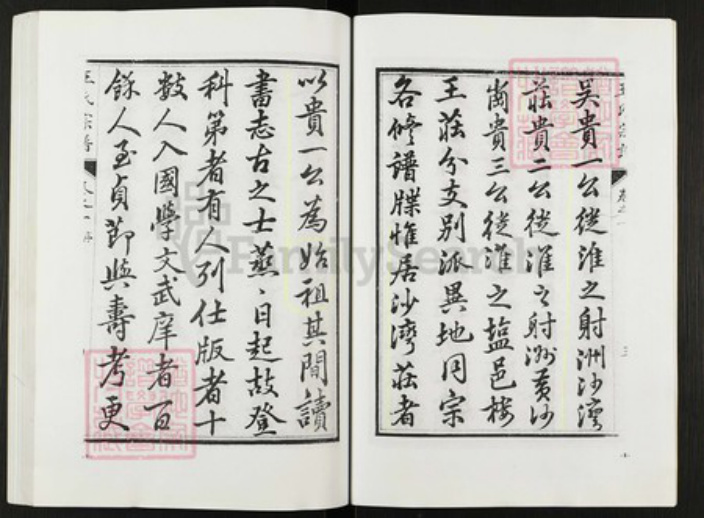 吳貴一公從淮之射洲沙灣
莊貴二公從淮之射洲黃沙
崗貴三公從淮之塩邑樓
王莊分支別派異地同宗
各修譜牒惟居沙灣莊者
以貴一公為始祖其間讀
書志古之士蒸〻日起故登
科第者有人列仕版者十
數人入國學文武庠者百
餘人至貞節與壽考更
王氏宗譜
FamilySearch